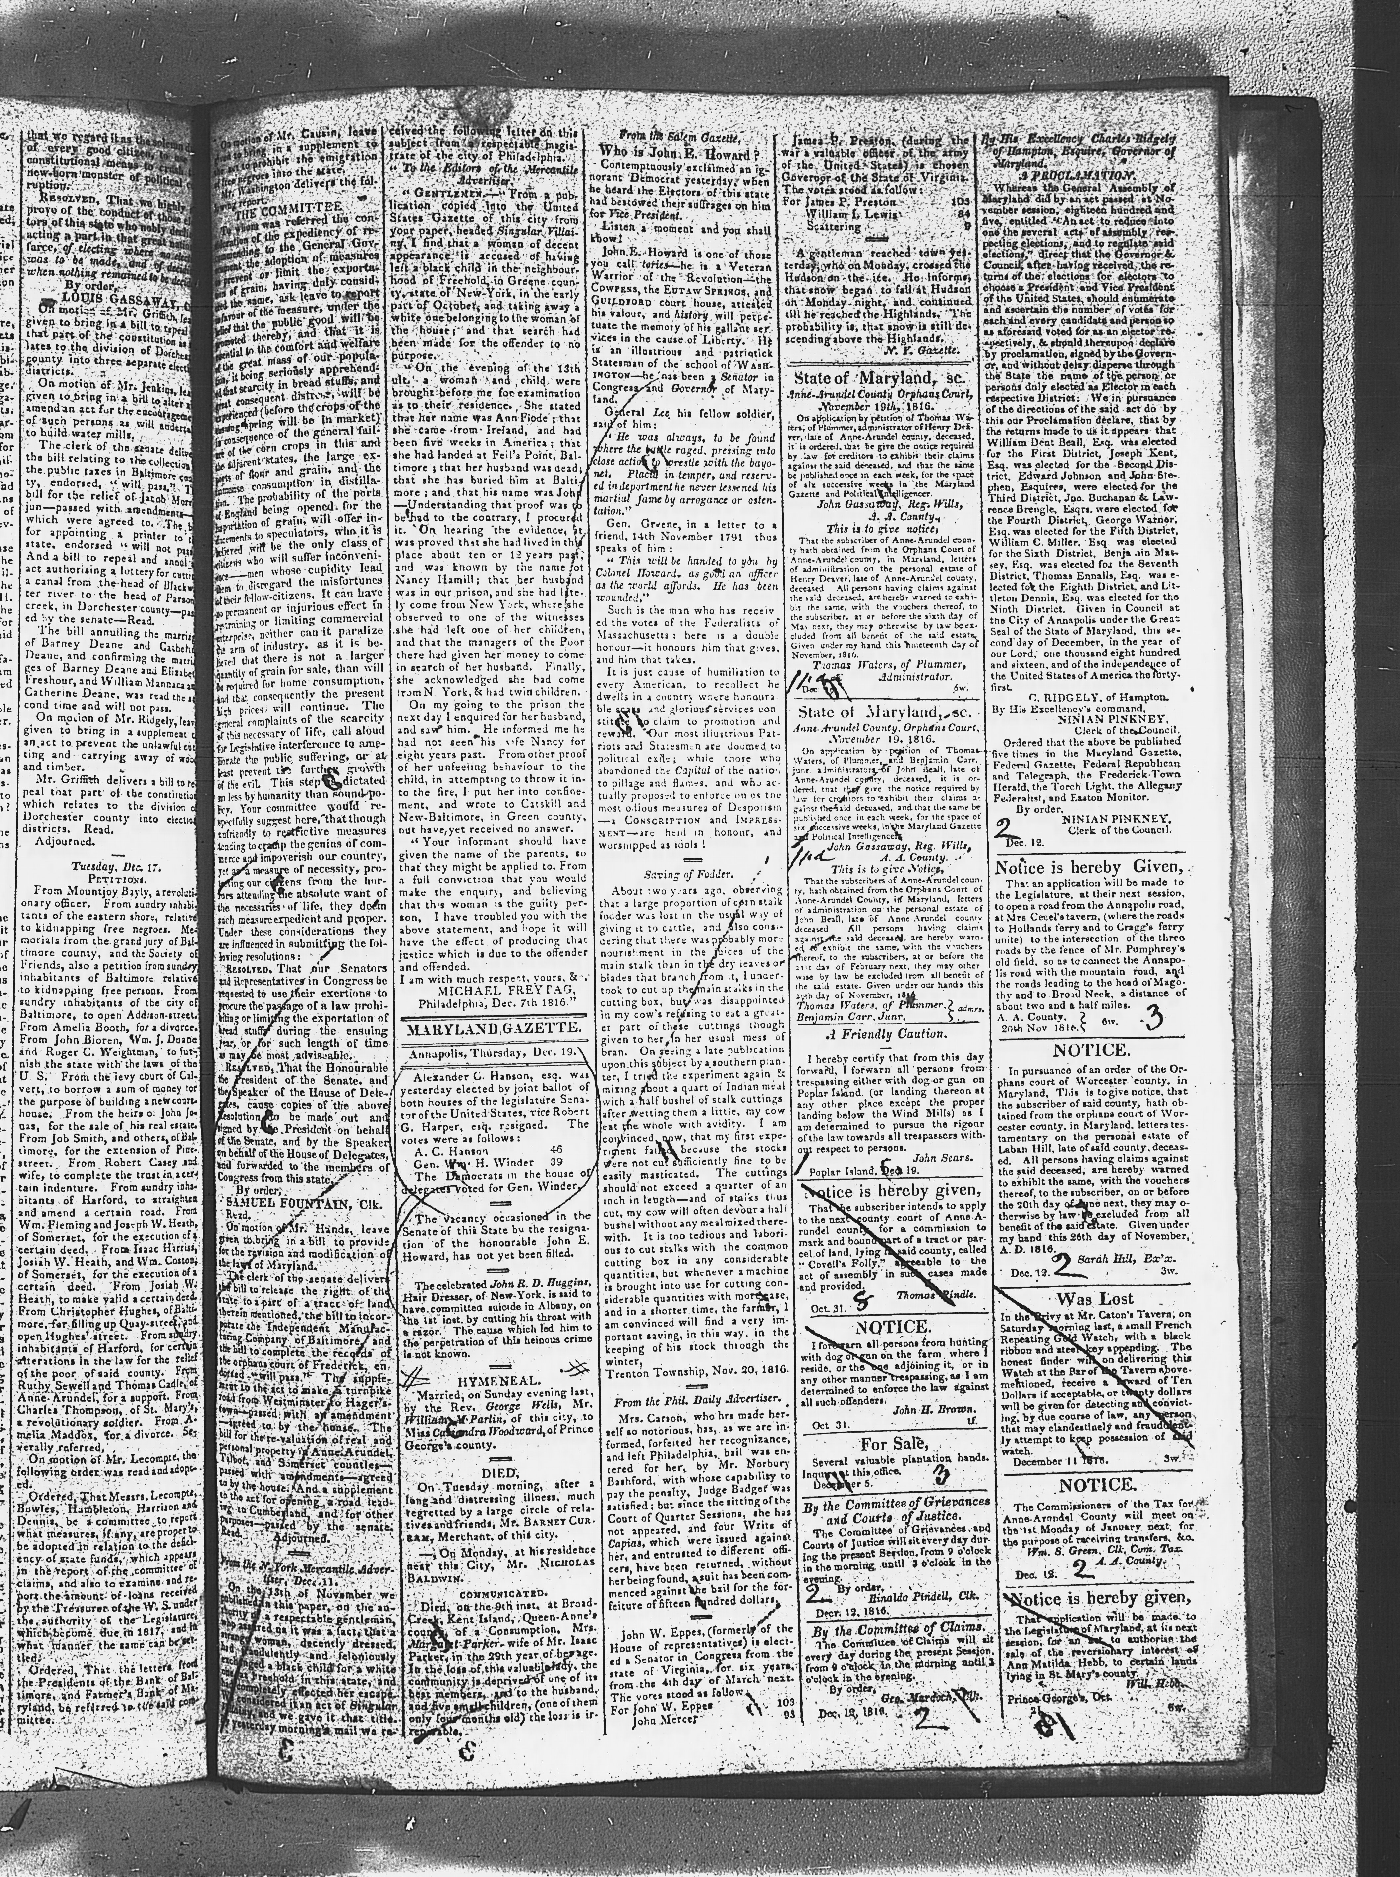 that we regard it as the solemn d
of every good citizen, to
constitutional means to crush
new-born monster of political c
ruption.
RESOLVED, That we highly
prove of the conduct of those el
tors of this state who nobly decli
acting a part in that great
farce, of electing where no
was to be made, and of deci
when nothing remained to be deci
By order,
LOUIS GASSAWAY,
On motion of Mr. Griffith, lea
given to bring in a bill to repeal
that part of the constitution as
lates to the division of Dorches
county into three separate elect
districts.
On motion of Mr. Jenkins, lea
given to bring in a bill to alter
amend an act for the encourageme
of such persons as will underta
to build water mills.
The clerk of the senate delive
the bill relating to the collection
the public taxes in Baltimore coun
ty, endorsed, "will pass." T
bill for the relief of Jacob Mor
jun—passed with amendments—
which were agreed to. The b
for appointing a printer to t
state, endorsed "will not pass
And a bill to repeal and annul
act authorising a lottery for cuttin
a canal from the head of Blackw
ter river to the head of Parson
creek, in Dorchester county—pas
ed by the senate—Read.
The bill annulling the marriag
of Barney Deane and Catherin
Deane, and confirming the marria
ges of Barney Deane and Elizabe
Freshour, and William Mannaca an
Catherine Deane, was read the se
cond time and will not pass.
On motion of Mr. Ridgely, leave
given to bring in a supplement to
an act to prevent the unlawful cut
ting and carrying away of wood
and timber.
Mr. Griffith delivers a bill to re
peal that part of the constitution
which relates to the division of
Dorchester county into election
districts. Read.
Adjourned.
Tuesday, Dec. 17.
PETITIONS.
From Mountjoy Bayly, a revoluti-
onary officer. From sundry inhabi-
tants of the eastern shore, relative
to kidnapping free negroes. Me-
morials from the grand jury of Bal-
timore county, and the Society of
Friends, also a petition from sundry
inhabitants of Baltimore relative
to kidnapping free persons. From
sundry inhabitants of the city of
Baltimore, to open Addison-street.
From Amelia Booth, for a divorce.
From John Bioren, Wm. J. Duane
and Roger C. Weightman, to fur-
nish the state with the laws of the
U S. From the levy court of Cal-
vert, to borrow a sum of money for
the purpose of building a new court
house. From the heirs of John Jo-
nas, for the sale of his real estate.
From Job Smith, and others, of Bal-
timore, for the extension of Pine-
street. From Robert Casey and
wife, to complete the trust in a cer-
tain indenture. From sundry inha-
bitants of Harford, to straighten
and amend a certain road. From
Wm. Fleming and Joseph W. Heath,
of Somerset, for the execution of a
certain deed. From Isaac Hirrius,
Josiah W. Heath, and Wm. Coston,
of Somerset, for the execution of a
certain deed. From Josiah W.
Heath, to make valid a certain deed.
From Christopher Hughes, of Balti-
more, for filling up Quay-street, and
open Hughes' street. From sundry
inhabitants of Harford, for certain
alterations in the law for the relief
of the poor of said county. From
Ruthy Sewell and Thomas Cadle, of
Anne-Arundel, for a support. From
Charles Thompson, of St. Mary's,
a revolutionary soldier. From A-
melia Maddox, for a divorce. Se-
verally referred.
On motion of Mr. Lecompte, the
following order was read and adopt-
ed.
Ordered, That Messrs. Lecompte,
Bowles, Hambleton, Harrison and
Dennis, be a committee to report
what measures, if any, are proper to
be adopted in relation to the defici-
ency of state funds, which appears
in the report of the committee of
claims, and also to examine and re-
port the amount of loans received
by the Treasurer of the W. S. under
the authority of the Legislature,
which become due in 1817, and in
what manner the same can be set-
tled.
Ordered, That the letters from
the Presidents of the Bank of Bal-
timore, and Farmer's Bank of Ma-
ryland, be referred to the said com-
mittee.
On motion of Mr. Causin, leave
given to bring in a supplement to
prohibit the emigration
of free negroes into the state.
Mr. Washington delivers the fol-
lowing report.
THE COMMITTEE
To whom was referred the con-
sideration of the expediency of re-
commending to the General Gov-
ernment the adoption of measures
to prevent or limit the exporta-
tion of grain, having duly consid-
ered the same, ask leave to report
in favour of the measure, under the
belief that the public good will be
promoted thereby; and that it is
essential to the comfort and welfare
of the great mass of our popula-
tion, it being seriously apprehend-
ed that scarcity in bread stuffs, and
great consequent distress, will be
experienced (before the crops of the
ensuing spring will be in market)
in consequence of the general fail-
ure of the corn crops in this and
the adjacent states, the large ex-
ports of flour and grain, and the
consumption in distilla-
tion. The probability of the ports
of England being opened for the
importation of grain, will offer in-
ducements to speculators, who it is
believed will be the only class of
citizens who will suffer inconveni-
ence—men whose cupidity lead
them to disregard the misfortunes
of their fellow-citizens. It can have
no permanent or injurious effect in
restraining or limiting commercial
enterprise, neither can it paralize
the arm of industry, as it is be-
lieved that there is not a larger
quantity of grain for sale, than will
be required for home consumption,
and that consequently the present
high prices will continue. The
general complaints of the scarcity
of this necessary of life, call aloud
for Legislative interference to ame-
liorate the public suffering, or at
least prevent the further growth
of the evil. This step is dictated
no less by humanity than sound po-
licy. Your committee would re-
spectfully suggest here, that though
unfriendly to restrictive measures
tending to cramp the genius of com-
merce and impoverish our country,
yet as a measure of necessity, pro-
tecting our citizens from the hor-
rors attending the absolute want of
the necessaries of life, they deem
such measure expedient and proper.
Under these considerations they
are influenced in submitting the fol-
lowing resolutions:
RESOLVED, That our Senators
and Representatives in Congress be
requested to use their exertions to
procure the passage of a law prohi-
biting or limiting the exportation of
bread stuffs during the ensuing
year, or for such length of time
as may be most advisable.
RESOLVED, That the Honourable
the President of the Senate, and
the Speaker of the House of Dele-
gates, cause copies of the above
resolution to be made out and
signed by the President on behalf
of the Senate, and by the Speaker
on behalf of the House of Delegates,
and forwarded to the members of
Congress from this state.
By order,
SAMUEL FOUNTAIN, Clk.
Read.
On motion of Mr. Hands, leave
given to bring in a bill to provide
for the revision and modification of
the laws of Maryland.
The clerk of the senate delivers
the bill to release the right of the
state to a part of a tract of land
therein mentioned, the bill to incor-
porate the Independent Manufac-
turing Company of Baltimore, and
the bill to complete the records of
the orphans court of Frederick, en-
dorsed "will pass." The supple-
ment to the act to make a turnpike
road from Westminster to Hager's-
town—passed with an amendment
—agreed to by the house. The
bill for the revaluation of real and
personal property in Anne-Arundel,
Talbot, and Somerset counties—
passed with amendments—agreed
to by the house. And a supplement
to the act for opening a road lead-
ing to Cumberland, and for other
purposes—passed by the senate.
Read. Adjourned.
From the N. York Mercantile Adver-
tiser, Dec. 11.
On the 13th of November we
published in this paper, on the au-
thority of a respectable gentleman,
who assured us it was a fact, that a
woman, decently dressed,
fraudulently and feloniously
exchanged a black child for a white
at Freehold in this state, and
completely effected her escape.
We considered it an act of singular
villainy, and we gave it that title.
Yesterday morning's mail we re-
ceived the following letter on this
subject from a respectable magis-
trate of the city of Philadelphia.
"To the Editors of the Mercantile
Advertiser.
"GENTLEMEN,—"From a pub-
lication copied into the United
States Gazette of this city from
your paper, headed Singular Villai-
ny, I find that a woman of decent
appearance is accused of having
left a black child in the neighbour-
hood of Freehold, in Greene coun-
ty, state of New-York, in the early
part of October, and taking away a
white one belonging to the woman of
the house; and that search had
been made for the offender to no
purpose.
"On the evening of the 13th
ult. a woman and child were
brought before me for examination
as to their residence. She stated
that her name was Ann Fiode; that
she came from Ireland, and had
been five weeks in America; that
she had landed at Fell's Point, Bal-
timore; that her husband was dead;
that she has buried him at Balti-
more; and that his name was John
—Understanding that proof was to
be had to the contrary, I procured
it. On hearing the evidence, it
was proved that she had lived in this
place about ten or 12 years past,
and was known by the name of
Nancy Hamill; that her husband
was in our prison, and she had late-
ly come from New York, where she
observed to one of the witnesses
she had left one of her children,
and that the managers of the Poor
there had given her money to come
in search of her husband. Finally,
she acknowledged she had come
from N. York, & had twin children.
On my going to the prison the
next day I enquired for her husband,
and saw him. He informed me he
had not seen his wife Nancy for
eight years past. From other proof
of her unfeeling behaviour to the
child, in attempting to throw it in-
to the fire, I put her into confine-
ment, and wrote to Catskill and
New-Baltimore, in Green county,
but have yet received no answer.
"Your informant should have
given the name of the parents, so
that they might be applied to. From
a full conviction that you would
make the enquiry, and believing
that this woman is the guilty per-
son, I have troubled you with the
above statement, and hope it will
have the effect of producing that
justice which is due to the offender
and offended.
I am with much respect, yours, &.
MICHAEL FREYTAG,
Philadelphia, Dec. 7th 1816."
MARYLAND GAZETTE.
Annapolis, Thursday, Dec. 19.
Alexander C. Hanson, esq. was
yesterday elected by joint ballot of
both houses of the legislature Sena-
tor of the United States, vice Robert
G. Harper, esq. resigned. The
votes were as follows:
A. C. Hanson 46
Gen. Wm. H. Winder 39
The Democrats in the house of
delegates voted for Gen. Winder.
The vacancy occasioned in the
Senate of this State by the resigna-
tion of the honourable John E.
Howard, has not yet been filled.
The celebrated John R. D. Huggins,
Hair Dresser, of New-York, is said to
have committed suicide in Albany, on
the 1st inst. by cutting his throat with
a razor. The cause which led him to
the perpetration of this heinous crime
is not known.
HYMENEAL.
Married, on Sunday evening last,
by the Rev. George Wells, Mr.
William M'Parlin, of this city, to
Miss Cassandra Woodward, of Prince
George's county.
DIED,
On Tuesday morning, after a
long and distressing illness, much
regretted by a large circle of rela-
tives and friends, Mr. BARNEY CUR-
RAN, Merchant, of this city.
—, On Monday, at his residence
near this City, Mr. NICHOLAS
BALDWIN.
COMMUNICATED.
Died, on the 9th inst. at Broad-
Creek, Kent Island, Queen-Anne's
county, of a Consumption, Mrs.
Margaret Parker, wife of Mr. Isaac
Parker, in the 29th year of her age.
In the loss of this valuable lady, the
community is deprived of one of its
best members, and to the husband,
and five small children (one of them
only four months old) the loss is ir-
reparable.
From the Salem Gazette,
Who is John E. Howard?
Contemptuously exclaimed an ig-
norant Democrat yesterday, when
he heard the Electors of this state
had bestowed their suffrages on him
for Vice President.
Listen a moment and you shall
know!
John E. Howard is one of those
you call tories—he is a Veteran
Warrior of the Revolution—the
COWPENS, the EUTAW SPRINGS, and
GUILDFORD court house, attested
his valour, and history will perpe-
tuate the memory of his gallant ser-
vices in the cause of Liberty. He
is an illustrious and patriotick
Statesman of the school of WASH-
INGTON—he has been a Senator in
Congress and Governor of Mary-
land.
General Lee, his fellow soldier,
said of him:
"He was always, to be found
where the battle raged, pressing into
close action to wrestle with the bayo-
net. Placid in temper, and reserv-
ed in deportment he never lessened his
martial fame by arrogance or osten-
tation."
Gen. Greene, in a letter to a
friend, 14th November 1791 thus
speaks of him:
"This will be handed to you by
Colonel Howard, as good an officer
as the world affords. He has been
wounded."
Such is the man who has receiv
ed the votes of the Federalists of
Massachusetts: here is a double
honour—it honours him that gives,
and him that takes.
It is just cause of humiliation to
every American, to recollect he
dwells in a country where honoura
ble scars and glorious services con
stitute no claim to promotion and
reward. Our most illustrious Pat-
riots and Statesmen are doomed to
political exile; while those who
abandoned the Capitol of the nation
to pillage and flames, and who ac-
tually proposed to enforce on us the
most odious measures of Despotism
—a CONSCRIPTION and IMPRESS-
MENT—are held in honour, and
worshipped as idols!
Saving of Fodder.
About two years ago, observing
that a large proportion of corn stalk
fodder was lost in the usual way of
giving it to cattle, and also consi-
dering that there was probably more
nourishment in the pieces of the
main stalk than in the dry leaves or
blades that branch from it, I under-
took to cut up the main stalks in the
cutting box, but was disappointed
in my cow's refusing to eat a great-
er part of these cuttings though
given to her in her usual mess of
bran. On seeing a late publication
upon this subject by a southern plan-
ter, I tried the experiment again &
mixing about a quart of Indian meal
with a half bushel of stalk cuttings
after wetting them a little, my cow
eat the whole with avidity. I am
convinced, now, that my first expe-
riment failed because the stocks
were not cut sufficiently fine to be
easily masticated. The cuttings
should not exceed a quarter of an
inch in length—and of stalks thus
cut, my cow will often devour a half
bushel without any meal mixed there-
with. It is too tedious and labori-
ous to cut stalks with the common
cutting box in any considerable
quantities, but whenever a machine
is brought into use for cutting con-
siderable quantities with more ease,
and in a shorter time, the farmer, I
am convinced will find a very im-
portant saving, in this way, in the
keeping of his stock through the
winter.
Trenton Township, Nov. 20, 1816.
From the Phil. Daily Advertiser.
Mrs. Carson, who hrs made her-
self so notorious, has, as we are in-
formed, forfeited her recognizance,
and left Philadelphia, bail was en-
tered for her, by Mr. Norbury
Bashford, with whose capability to
pay the penalty, Judge Badger was
satisfied; but since the sitting of the
Court of Quarter Sessions, she has
not appeared, and four Writs of
Capias, which were issued against
her, and entrusted to different offi-
cers, have been returned, without
her being found, a suit has been com-
menced against the bail for the for-
feiture of fifteen hundred dollars.
John W. Eppes, (formerly of the
House of representatives) is elect-
ed a Senator in Congress from the
state of Virginia, for six years,
from the 4th day of March next.
The votes stood as follow:
For John W. Eppes 103
John Mercer 93
James P. Preston, (during the
war a valuable officer of the army
of the United States) is chosen
Governor of the State of Virginia.
The votes stood as follow:
For James P. Preston 103
William I. Lewis 84
Scattering 9
A gentleman reached town yes-
terday, who on Monday, crossed the
Hudson on the ice. He informs,
that snow began to fall at Hudson
on Monday night, and continued
till he reached the Highlands. The
probability is, that snow is still de-
scending above the Highlands.
N. Y. Gazette.
State of Maryland, sc.
Anne-Arundel County Orphans Court,
November 19th, 1816.
On application by petition of Thomas Wa-
ters, of Plummer, administrator of Henry Dea-
ver, late of Anne-Arundel county, deceased,
it is ordered, that he give the notice required
by law for creditors to exhibit their claims
against the said deceased, and that the same
be published once in each week, for the space
of six successive weeks, in the Maryland
Gazette and Political Intelligencer.
John Gassaway, Reg. Wills,
A. A. County.
This is to give notice,
That the subscriber of Anne-Arundel coun-
ty hath obtained from the Orphans Court of
Anne-Arundel county, in Maryland, letters
of administration on the personal estate of
Henry Deaver, late of Anne-Arundel county,
deceased All persons having claims against
the said deceased, are hereby warned to exhi-
bit the same, with the vouchers thereof, to
the subscriber, at or before the sixth day of
May next, they may otherwise by law be ex-
cluded from all benefit of the said estate.
Given under my hand this nineteenth day of
November, 1816.
Thomas Waters, of Plummer,
Administrator.
Dec 6w.
State of Maryland, sc.
Anne Arundel County, Orphans Court,
November 19, 1816.
On application by petition of Thomas
Waters, of Plummer, and Benjamin Carr,
june. administrators of John Beall, late of
Anne-Arundel county, deceased, it is or-
dered, that they give the notice required by
law for creditors to exhibit their claims a-
gainst the said deceased, and that the same be
published once in each week, for the space of
six successive weeks, in the Maryland Gazette
and Political Intelligencer.
John Gassaway, Reg. Wills,
A. A. County.
This is to give Notice,
That the subscribers of Anne-Arundel coun-
ty, hath obtained from the Orphans Court of
Anne-Arundel county, in Maryland, letters
of administration on the personal estate of
John Beall, late of Anne-Arundel county
deceased All persons having claims
against the said deceased, are hereby warn-
ed to exhibit the same, with the vouchers
thereof, to the subscribers, at or before the
21st day of February next, they may other-
wise by law be excluded from all benefit of
the said estate. Given under our hands this
19th day of November, 1816.
Thomas Waters, of Plummer. } admrs.
Benjamin Carr, Junr.
A Friendly Caution.
I hereby certify that from this day
forward, I forwarn all persons from
trespassing either with dog or gun on
Poplar Island. (or landing thereon at
any other place except the proper
landing below the Wind Mills) as I
am determined to pursue the rigour
of the law towards all trespassers with-
out respect to persons.
John Sears.
1
Poplar Island, Dec. 19.
Notice is hereby given,
That the subscriber intends to apply
to the next county court of Anne A-
rundel county for a commission to
mark and bound part of a tract or par-
cel of land, lying in said county, called
"Covell's Folly," agreeable to the
act of assembly in such cases made
and provided.
Thomas Rindle.
Oct. 31. 8
NOTICE.
I forewarn all persons from hunting
with dog or gun on the farm where I
reside, or the one adjoining it, or in
any other manner trespassing, as I am
determined to enforce the law against
all such offenders.
John H. Brown.
Oct. 31. tf.
For Sale,
Several valuable plantation hands.
Inquire at this office. 3
December 5.
By the Committee of Grievances
and Courts of Justice.
The Committee of Grievances and
Courts of Justice will sit every day dur-
ing the present Session, from 9 o'clock
in the morning until 3 o'clock in the
evening.
2 By order,
Rinaldo Pindell, Clk.
Decr. 12, 1816.
By the Committee of Claims.
The Committee of Claims will sit
every day during the present Session,
from 9 o'clock in the morning until 3
o'clock in the evening.
By order,
Geo. Murdoch, Clk.
Dec. 12, 1816. 2
By His Excellency Charles Ridgely
of Hampton, Esquire, Governor of
Maryland.
A PROCLAMATION.
Whereas the General Assembly of
Maryland did by an act passed at No-
vember session, eighteen hundred and
five, entitled "An act to reduce into
one the several acts of assembly res-
pecting elections, and to regulate said
elections," direct that the Governor &
Council, after having received the re-
turns of the elections for electors to
choose a President and Vice President
of the United States, should enumerate
and ascertain the number of votes for
each and every candidate and person so
as aforesaid voted for as an elector re-
spectively, & should thereupon declare
by proclamation, signed by the Govern-
or, and without delay disperse through
the State the name of the person or
persons duly elected as Elector in each
respective District: We in pursuance
of the directions of the said act do by
this our Proclamation declare, that by
the returns made to us it appears that
William Dent Beall, Esq. was elected
for the First District, Joseph Kent,
Esq. was elected for the Second Dis-
trict, Edward Johnson and John Ste-
phen, Esquires, were elected for the
Third District, Jno. Buchanan & Law-
rence Brengle, Esqrs. were elected for
the Fourth District, George Warner,
Esq. was elected for the Fifth District,
William C. Miller, Esq was elected
for the Sixth District, Benjamin Mas-
sey, Esq. was elected for the Seventh
District, Thomas Ennalls, Esq. was e-
lected for the Eighth District, and Lit-
tleton Dennis, Esq. was elected for the
Ninth District. Given in Council at
the City of Annapolis under the Great
Seal of the State of Maryland, this se-
cond day of December, in the year of
our Lord, one thousand eight hundred
and sixteen, and of the independence of
the United States of America the forty-
first.
C. RIDGELY, of Hampton.
By His Excellency's command,
NINIAN PINKNEY,
Clerk of the Council.
Ordered that the above be published
five times in the Maryland Gazette,
Federal Gazette, Federal Republican
and Telegraph, the Frederick-Town
Herald, the Torch Light, the Allegany
Federalist, and Easton Monitor.
By order,
NINIAN PINKNEY,
Clerk of the Council.
2
Dec. 12.
Notice is hereby Given,
That an application will be made to
the Legislature, at their next session,
to open a road from the Annapolis road,
at Mrs Creuel's tavern, (where the roads
to Hollands ferry and to Cragg's ferry
unite) to the intersection of the three
roads by the fence of Mr. Pumphrey's
old field, so as to connect the Annapo-
lis road with the mountain road, and
the roads leading to the head of Mago-
thy and to Broad Neck, a distance of
about two and a half miles.
A. A. County.
26th Nov 1816. } 6w. 3
NOTICE.
In pursuance of an order of the Or-
phans court of Worcester county, in
Maryland, This is to give notice, that
the subscriber of said county, hath ob-
tained from the orphans court of Wor-
cester county, in Maryland, letters tes-
tamentary on the personal estate of
Laban Hill, late of said county, deceas-
ed. All persons having claims against
the said deceased, are hereby warned
to exhibit the same, with the vouchers
thereof, to the subscriber, on or before
the 20th day of June next, they may o-
therwise by law be excluded from all
benefit of the said estate. Given under
my hand this 26th day of November,
A. D. 1816.
Sarah Hill, Ex'x.
Dec. 12. 2 3w.
Was Lost
In the Privy at Mr. Caton's Tavern, on
Saturday morning last, a small French
Repeating Gold Watch, with a black
ribbon and steel key appending. The
honest finder will on delivering this
Watch at the Bar of the Tavern above-
mentioned, receive a reward of Ten
Dollars if acceptable, or twenty dollars
will be given for detecting and convict-
ing, by due course of law, any person
that may clandestinely and fraudulent-
ly attempt to keep possession of said
watch.
December 11 1816. 3w.
NOTICE.
The Commissioners of the Tax for
Anne-Arundel County will meet on
the 1st Monday of January next, for
the purpose of receiving transfers, &c.
Wm. S. Green, Clk. Com. Tax.
A. A. County.
Dec. 12. 2
Notice is hereby given,
That application will be made to
the Legislature of Maryland, at its next
session, for an act to authorise the
sale of the reversionary interest of
Ann Matilda Hebb, to certain lands
lying in St. Mary's county
Will. Hebb.
Prince George's, Oct.
6w.